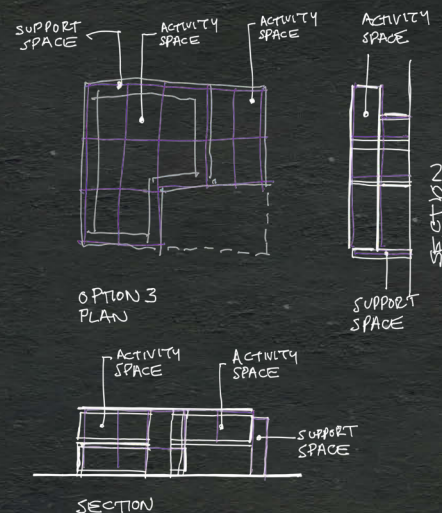 SUPPORT
SPACE
ACTIVITY
SPACE
ACTIVITY
SPACE
ACTIVITY
SPACE
OPTION 3
PLAN
SUPPORT
SPACE
SECTION 2
ACTIVITY
SPACE
ACTIVITY
SPACE
SUPPORT
SPACE
SECTION